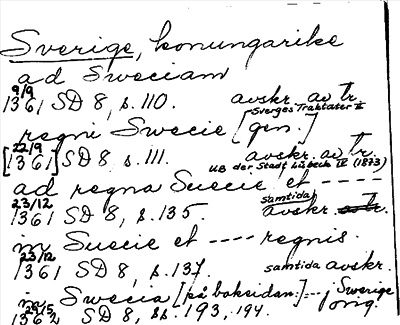 Sverige, konungarike
ad Sweciam
9/9
1361 SD 8, s. 110. avskr. av tr.
Sverges Traktater II
regni Swecie [gen.]
22/9
[1361] SD 8, s. 111. avskr. av tr.
UB der Stadt Lübeck IV (1873)
ad regna Suecie et ----
23/12 samtida
1361 SD 8, s. 135. avskr. av tr.
in Suecie et ---- regnis.
23/12
1361 SD 8, s. 137. samtida avskr.
in Swecia [på baksidan: -- j Swerige
29/5 orig.
1362 SD 8, ss. 193, 194.